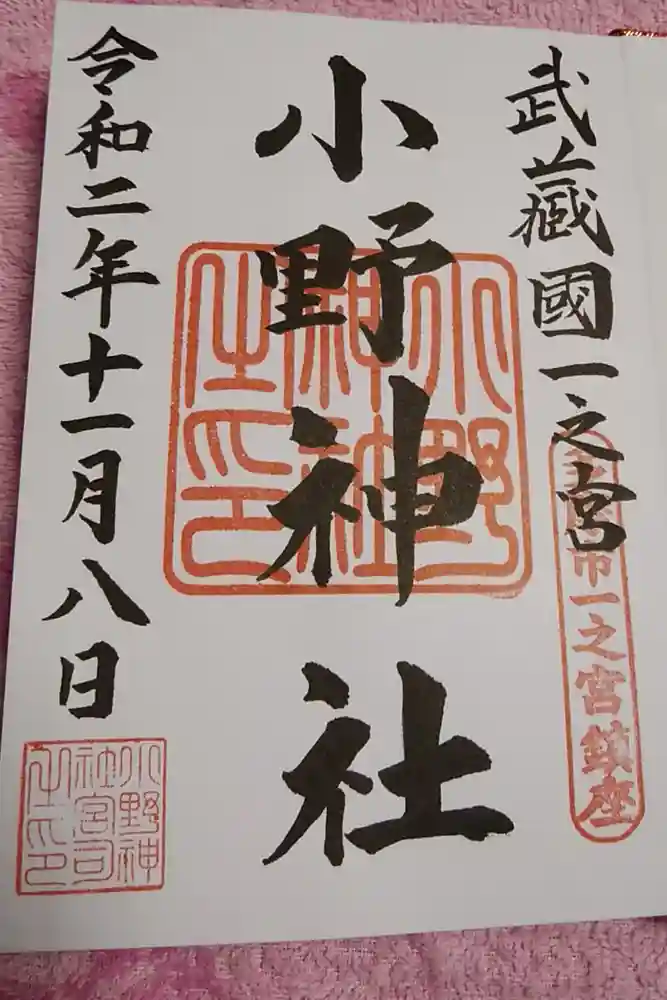 武蔵國一之宮
多摩市一之宮鎮座
小野神社
小野神社之印
令和二年十一月八日
小野神社宮司之印